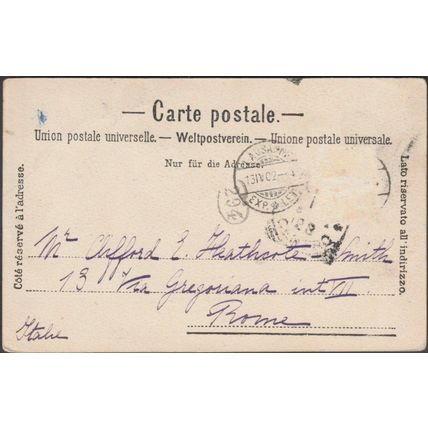 — Carte postale. —
Union postale universelle. — Weltpostverein. — Unione postale universale.
Nur für die Adresse.
Côté réservé à l'adresse.
Lato riservato all'indirizzo.
13 IV 02
EXP. LET.
Mr Clifford L. Heathcote Smith
13 Via Gregoriana int III
Rome
Italie